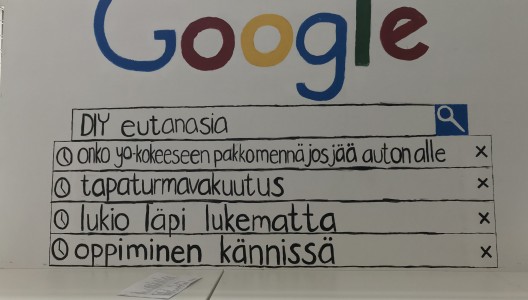 Google
DIY eutanasia
onko yo-kokeeseen pakko mennä jos jää auton alle
tapaturmavakuutus
lukio läpi lukematta
oppiminen kännissä